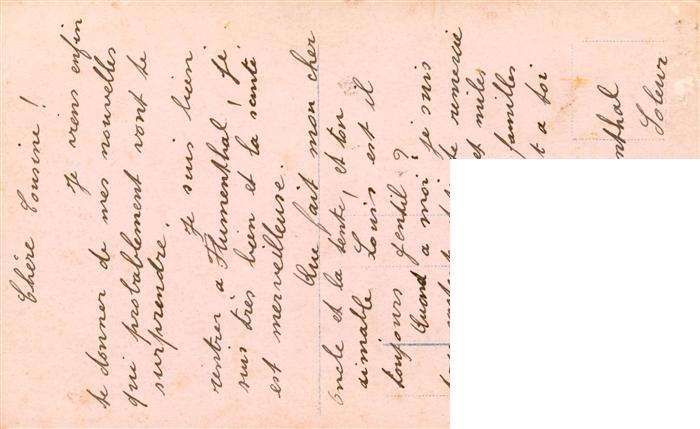 Chère Cousine !
Je viens enfin
te donner de mes nouvelles
qui probablement vont te
surprendre.
Je suis bien
rentrer à Flumenthal ! Je
suis très bien et la santé
est merveilleuse.
Que fait mon cher
oncle et la tente et ton
aimable Louis ! est il
toujours gentil ?
Quand a moi ? je suis
te remercie
et milles
familles
t a toi
nthal
Soleur